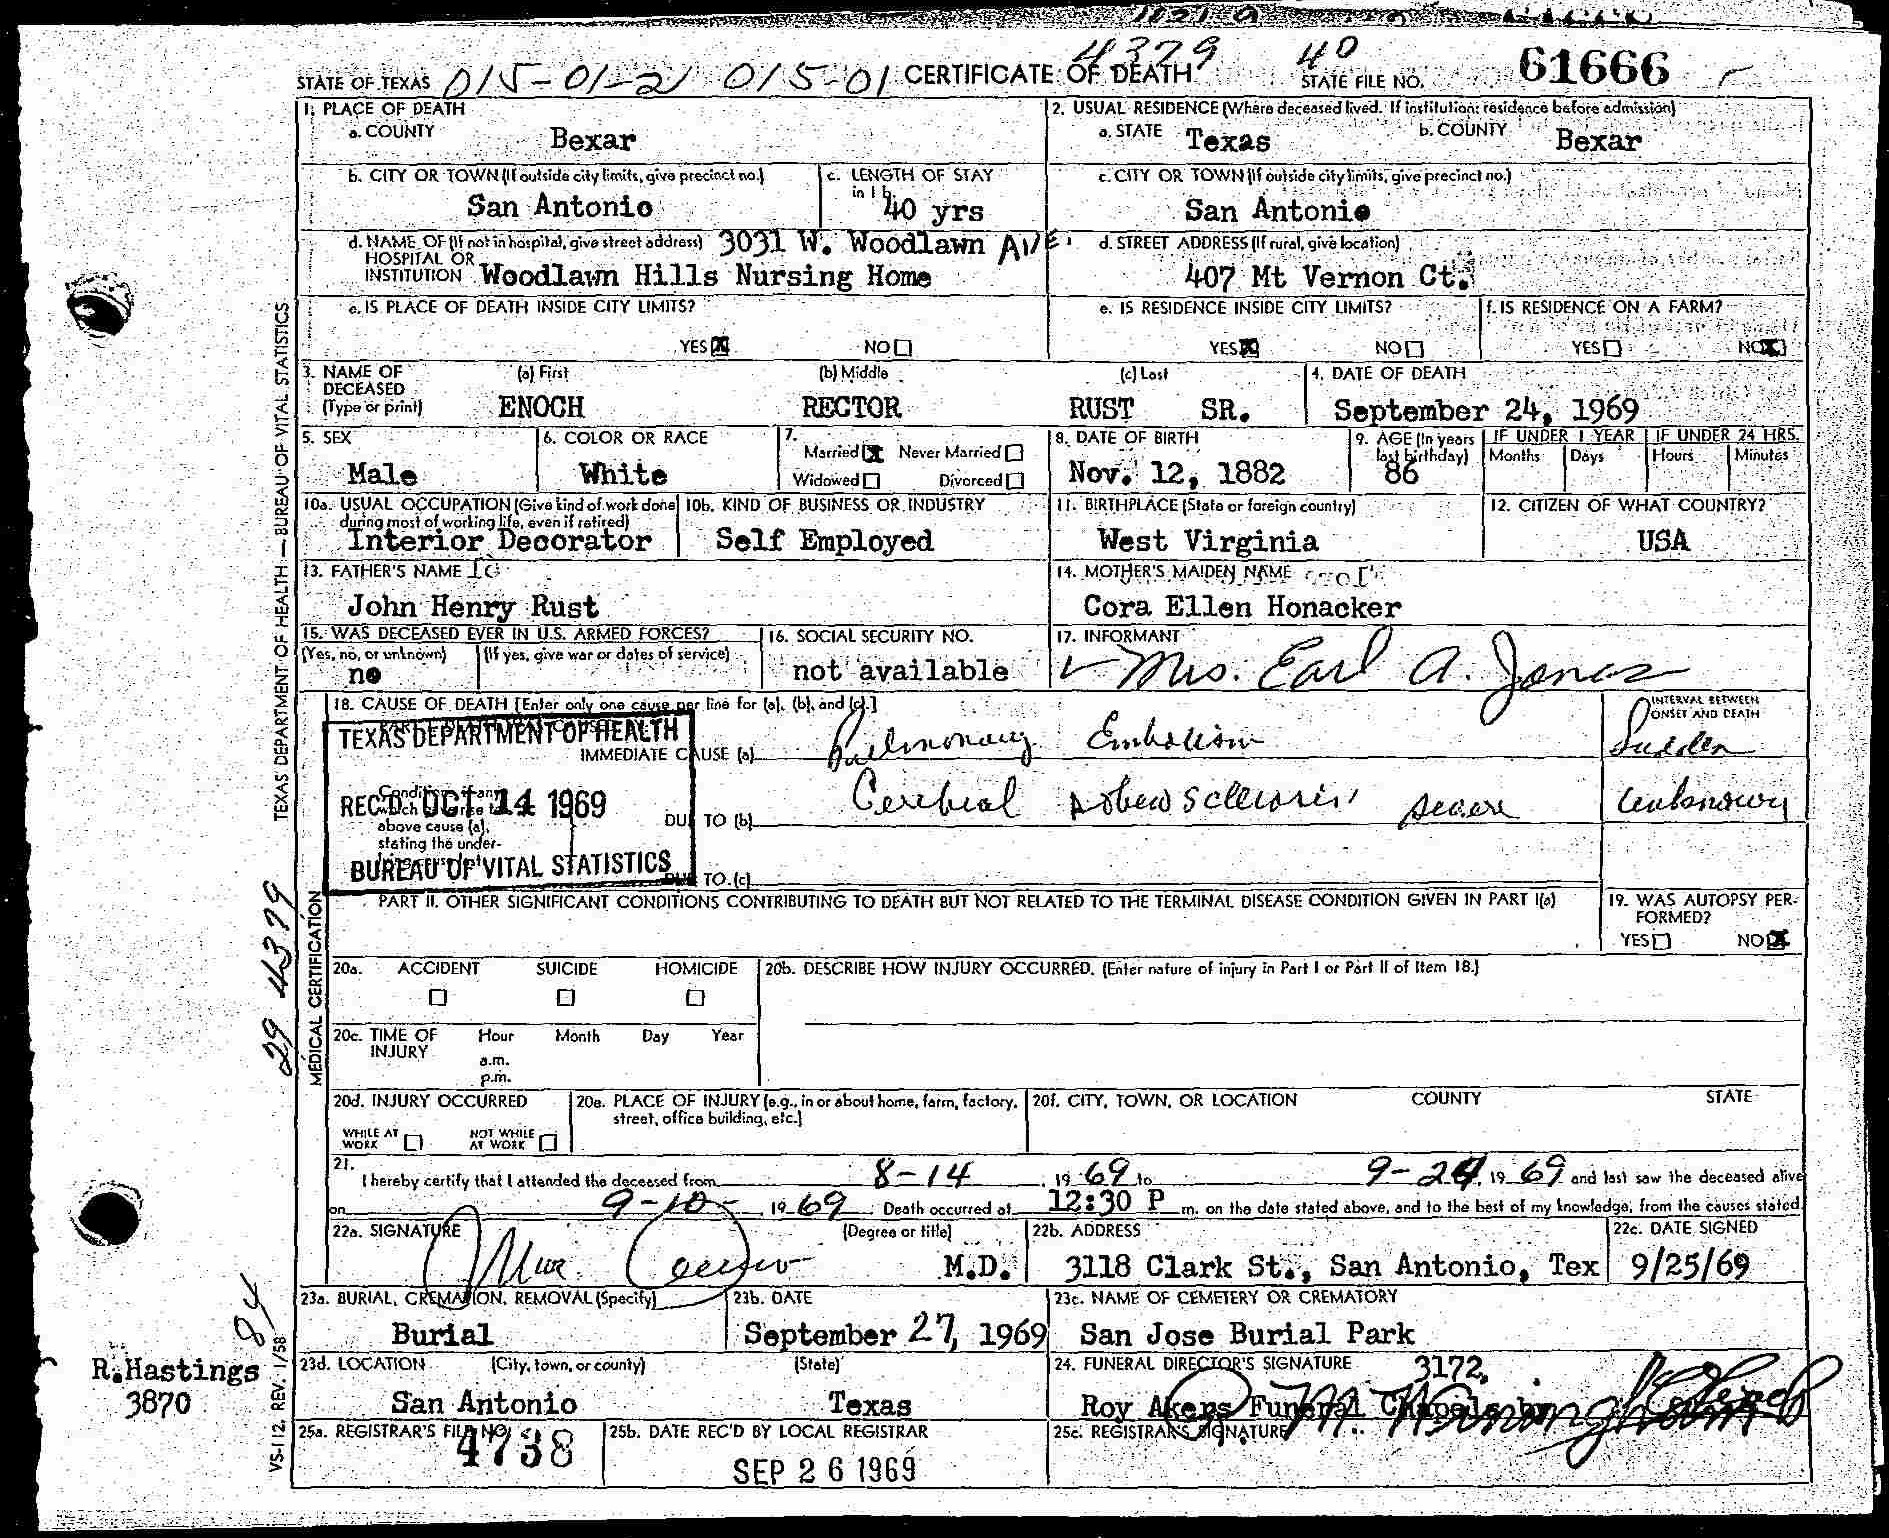 4379 40
STATE OF TEXAS 015-01-21 015-01 CERTIFICATE OF DEATH STATE FILE NO. 61666
1. PLACE OF DEATH
a. COUNTY Bexar
2. USUAL RESIDENCE (Where deceased lived. If institution: residence before admission)
a. STATE Texas b. COUNTY Bexar
b. CITY OR TOWN (If outside city limits, give precinct no.)
San Antonio
c. LENGTH OF STAY in 1b
40 yrs
c. CITY OR TOWN (If outside city limits, give precinct no.)
San Antonio
d. NAME OF (If not in hospital, give street address) 3031 W. Woodlawn AVE.
HOSPITAL OR
INSTITUTION Woodlawn Hills Nursing Home
d. STREET ADDRESS (If rural, give location)
407 Mt Vernon Ct.
e. IS PLACE OF DEATH INSIDE CITY LIMITS?
YES X NO
e. IS RESIDENCE INSIDE CITY LIMITS?
YES X NO
f. IS RESIDENCE ON A FARM?
YES NO X
3. NAME OF DECEASED (Type or print)
(a) First (b) Middle (c) Last
ENOCH RECTOR RUST SR.
4. DATE OF DEATH
September 24, 1969
5. SEX
Male
6. COLOR OR RACE
White
7.
Married X Never Married
Widowed Divorced
8. DATE OF BIRTH
Nov. 12, 1882
9. AGE (In years last birthday)
86
IF UNDER 1 YEAR IF UNDER 24 HRS.
Months Days Hours Minutes
10a. USUAL OCCUPATION (Give kind of work done during most of working life, even if retired)
Interior Decorator
10b. KIND OF BUSINESS OR INDUSTRY
Self Employed
11. BIRTHPLACE (State or foreign country)
West Virginia
12. CITIZEN OF WHAT COUNTRY?
USA
13. FATHER'S NAME
John Henry Rust
14. MOTHER'S MAIDEN NAME
Cora Ellen Honacker
15. WAS DECEASED EVER IN U.S. ARMED FORCES?
(Yes, no, or unknown) (If yes, give war or dates of service)
no
16. SOCIAL SECURITY NO.
not available
17. INFORMANT
Mrs. Earl A. Jones
18. CAUSE OF DEATH [Enter only one cause per line for (a), (b), and (c).]
INTERVAL BETWEEN ONSET AND DEATH
TEXAS DEPARTMENT OF HEALTH
IMMEDIATE CAUSE (a) Pulmonary Embolism Sudden
REC'D OCT 14 1969
Conditions, if any, which gave rise to
above cause (a),
stating the under-
DUE TO (b) Cerebral severe unknown
BUREAU OF VITAL STATISTICS
DUE TO (c)
PART II. OTHER SIGNIFICANT CONDITIONS CONTRIBUTING TO DEATH BUT NOT RELATED TO THE TERMINAL DISEASE CONDITION GIVEN IN PART I(a)
19. WAS AUTOPSY PERFORMED?
YES NO X
20a. ACCIDENT SUICIDE HOMICIDE
20b. DESCRIBE HOW INJURY OCCURRED. (Enter nature of injury in Part I or Part II of Item 18.)
20c. TIME OF INJURY Hour Month Day Year
a.m.
p.m.
20d. INJURY OCCURRED
WHILE AT WORK NOT WHILE AT WORK
20e. PLACE OF INJURY (e.g., in or about home, farm, factory, street, office building, etc.)
20f. CITY, TOWN, OR LOCATION COUNTY STATE
21.
I hereby certify that I attended the deceased from 8-14, 1969 to 9-24, 1969 and last saw the deceased alive
on 9-10-, 1969. Death occurred at 12:30 P m. on the date stated above, and to the best of my knowledge, from the causes stated.
22a. SIGNATURE (Degree or title)
M.D.
22b. ADDRESS
3118 Clark St., San Antonio, Tex
22c. DATE SIGNED
9/25/69
23a. BURIAL, CREMATION, REMOVAL (Specify)
Burial
23b. DATE
September 27, 1969
23c. NAME OF CEMETERY OR CREMATORY
San Jose Burial Park
23d. LOCATION (City, town, or county) (State)
San Antonio Texas
24. FUNERAL DIRECTOR'S SIGNATURE 3172,
Roy Akers Funeral Chapels by
25a. REGISTRAR'S FILE NO.
4738
25b. DATE REC'D BY LOCAL REGISTRAR
SEP 26 1969
25c. REGISTRAR'S SIGNATURE
TEXAS DEPARTMENT OF HEALTH — BUREAU OF VITAL STATISTICS
MEDICAL CERTIFICATION
29 4379
84
VS-112, REV. 1/58
R.Hastings
3870